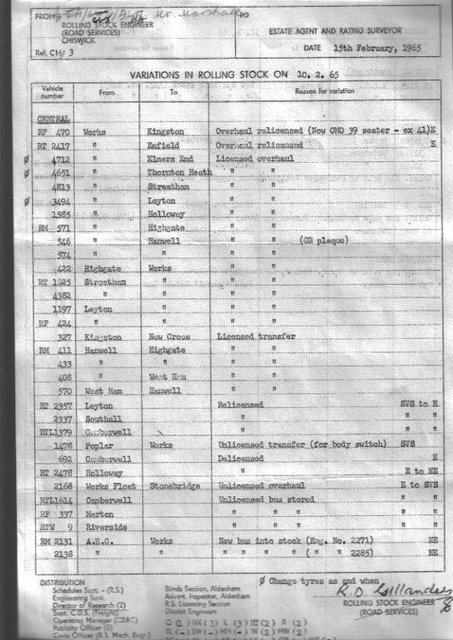 FROM:- Mr. Marshall
ROLLING STOCK ENGINEER
(ROAD SERVICES)
CHISWICK
Ref. C16/ 3
ESTATE AGENT AND RATING SURVEYOR
DATE 15th February, 1965
VARIATIONS IN ROLLING STOCK ON 10. 2. 65
Vehicle number From To Reason for variation
CENTRAL
RF 470 Works Kingston Overhaul relicensed (Now OMO 39 seater - ex 41)E
RT 2417 " Enfield Overhaul relicensed E
Ø 4712 " Elmers End Licensed overhaul
Ø 4651 " Thornton Heath " "
4813 " Streatham " "
Ø 3494 " Leyton " "
1585 " Holloway " "
RM 571 " Highgate " "
546 " Hanwell " " (GB plaque)
574 " " " "
422 Highgate Works " "
RT 1625 Streatham " " "
4382 " " " "
1197 Leyton " " "
RF 424 " " " "
327 Kingston New Cross Licensed transfer
RM 411 Hanwell Highgate " "
433 " " " "
408 " West Ham " "
570 West Ham Hanwell " "
RT 2357 Leyton Relicensed SVS to E
2337 Southall " " " "
RTL1379 Camberwell " " " "
1478 Poplar Works Unlicensed transfer (for body switch) SVS
692 Camberwell Delicensed E
RT 2478 Holloway " E to NE
2168 Works Float Stonebridge Unlicensed overhaul E to SVS
RTL1614 Camberwell Unlicensed bus stored "
RF 337 Merton " " " "
RTW 9 Riverside " " " "
RM 2131 A.E.C. Works New bus into stock (Eng. No. 2271) NE
2138 " " " " " " ( " " 2285) NE
Ø Change tyres as and when
DISTRIBUTION
Schedules Supt. - (R.S.)
Engineering Supt.
Director of Research (2)
Supt. C.D.S. (Freight)
Operating Manager (CDBC)
Publicity Officer (3)
Costs Officer (R.S. Mech. Engr.)
Blinds Section, Aldenham
Advert. Inspector, Aldenham
R.S. Licensing Section
District Engineers
ROLLING STOCK ENGINEER
(ROAD SERVICES)